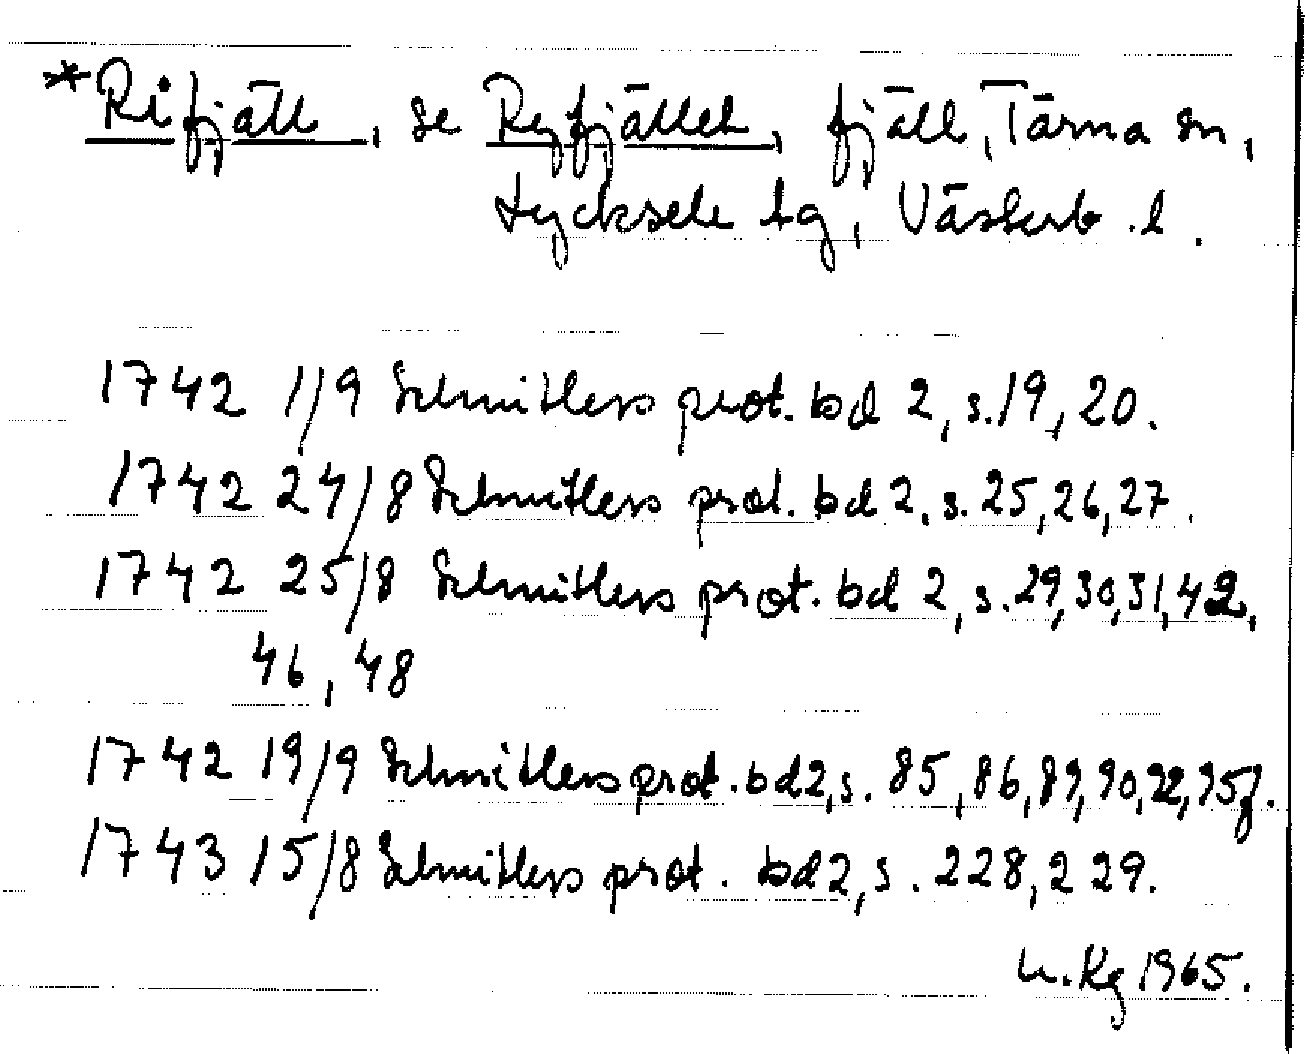 *Rifjäll, se Reyfjället, fjäll, Tärna sn,
Lycksele lg, Västerb. l.
1742 1/9 Schnitlers prot. bd 2, s. 19, 20.
1742 24/8 Schnitlers prot. bd 2, s. 25, 26, 27.
1742 25/8 Schnitlers prot. bd 2, s. 29, 30, 31, 42,
46, 48
1742 19/9 Schnitlers prot. bd 2, s. 85, 86, 89, 90, 92, 95f.
1743 15/8 Schnitlers prot. bd 2, s. 228, 229.
Kg 1965.